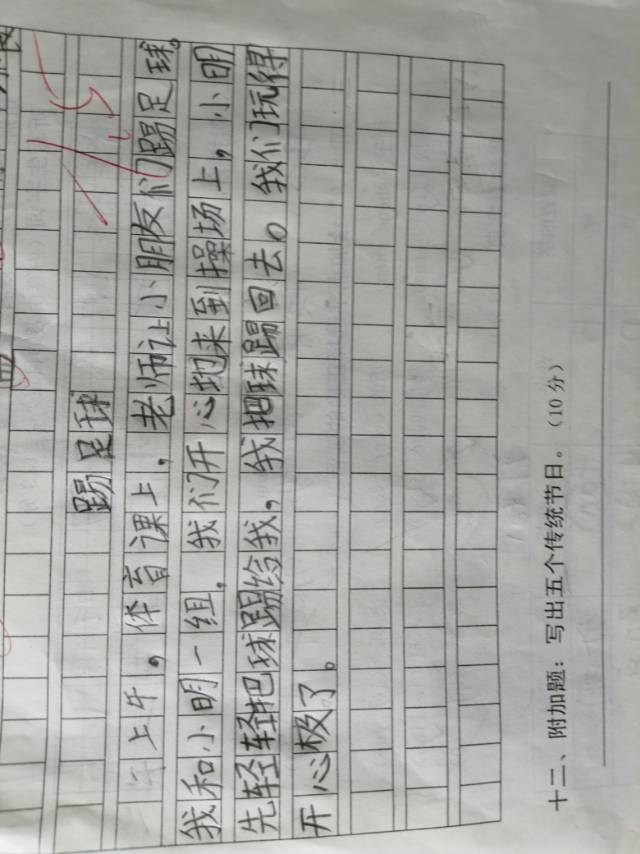 踢足球
上午，体育课上，老师让小朋友们踢足球。
我和小明一组，我们开心地来到操场上，小明
先轻轻把球踢给我，我把球踢回去。我们玩得
开心极了。
十二、附加题：写出五个传统节日。（10分）